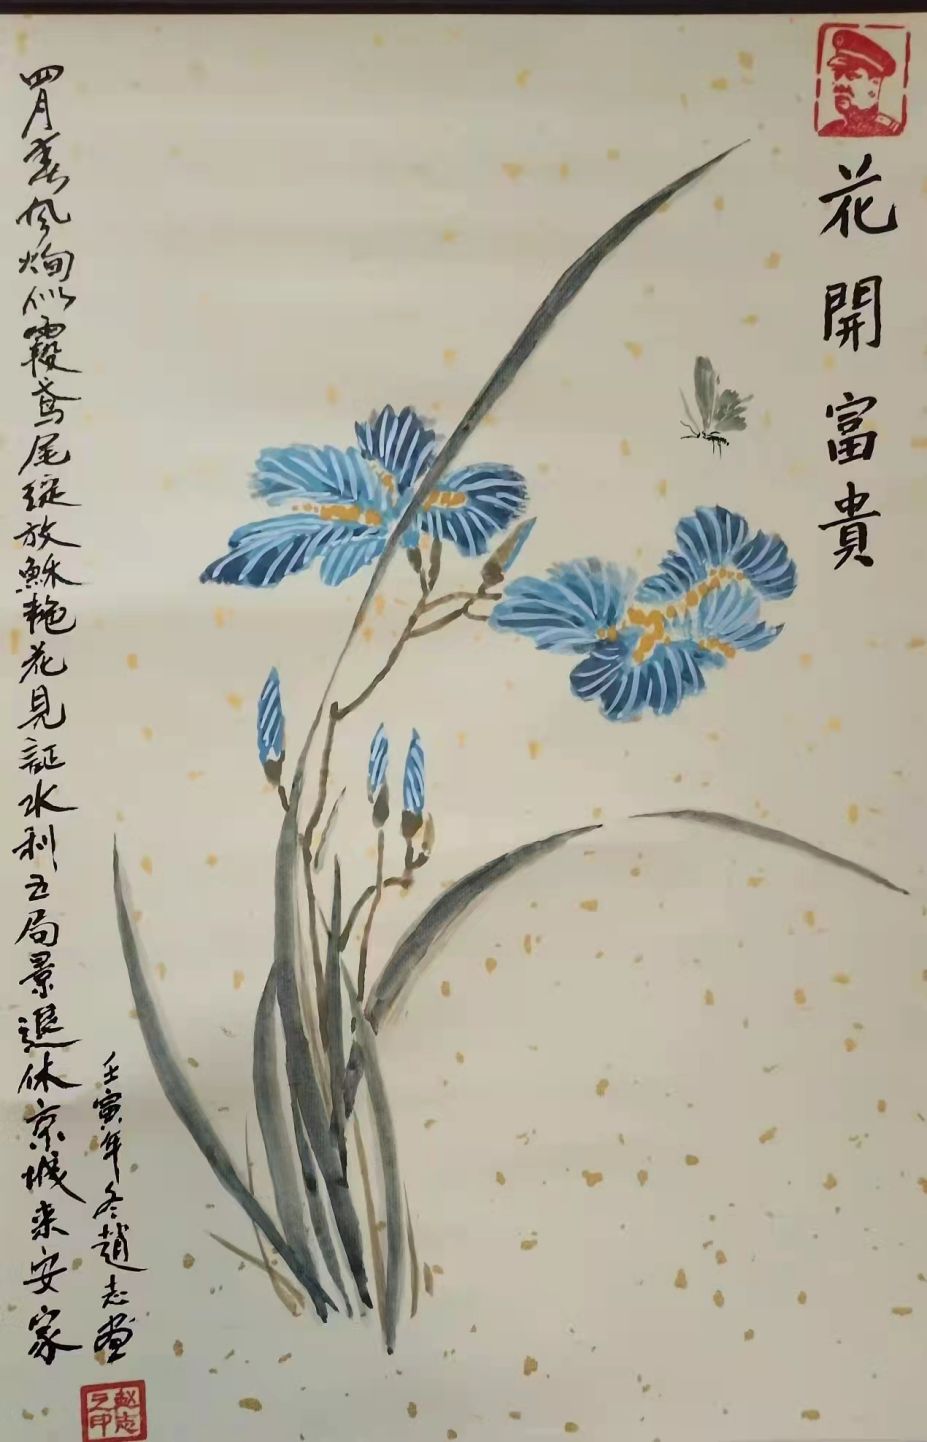 花開富貴
四月春风灼似霞鸢尾綻放鮮艳花見証水利五局景退休京城来安家
壬寅年冬趙志画
赵志之印